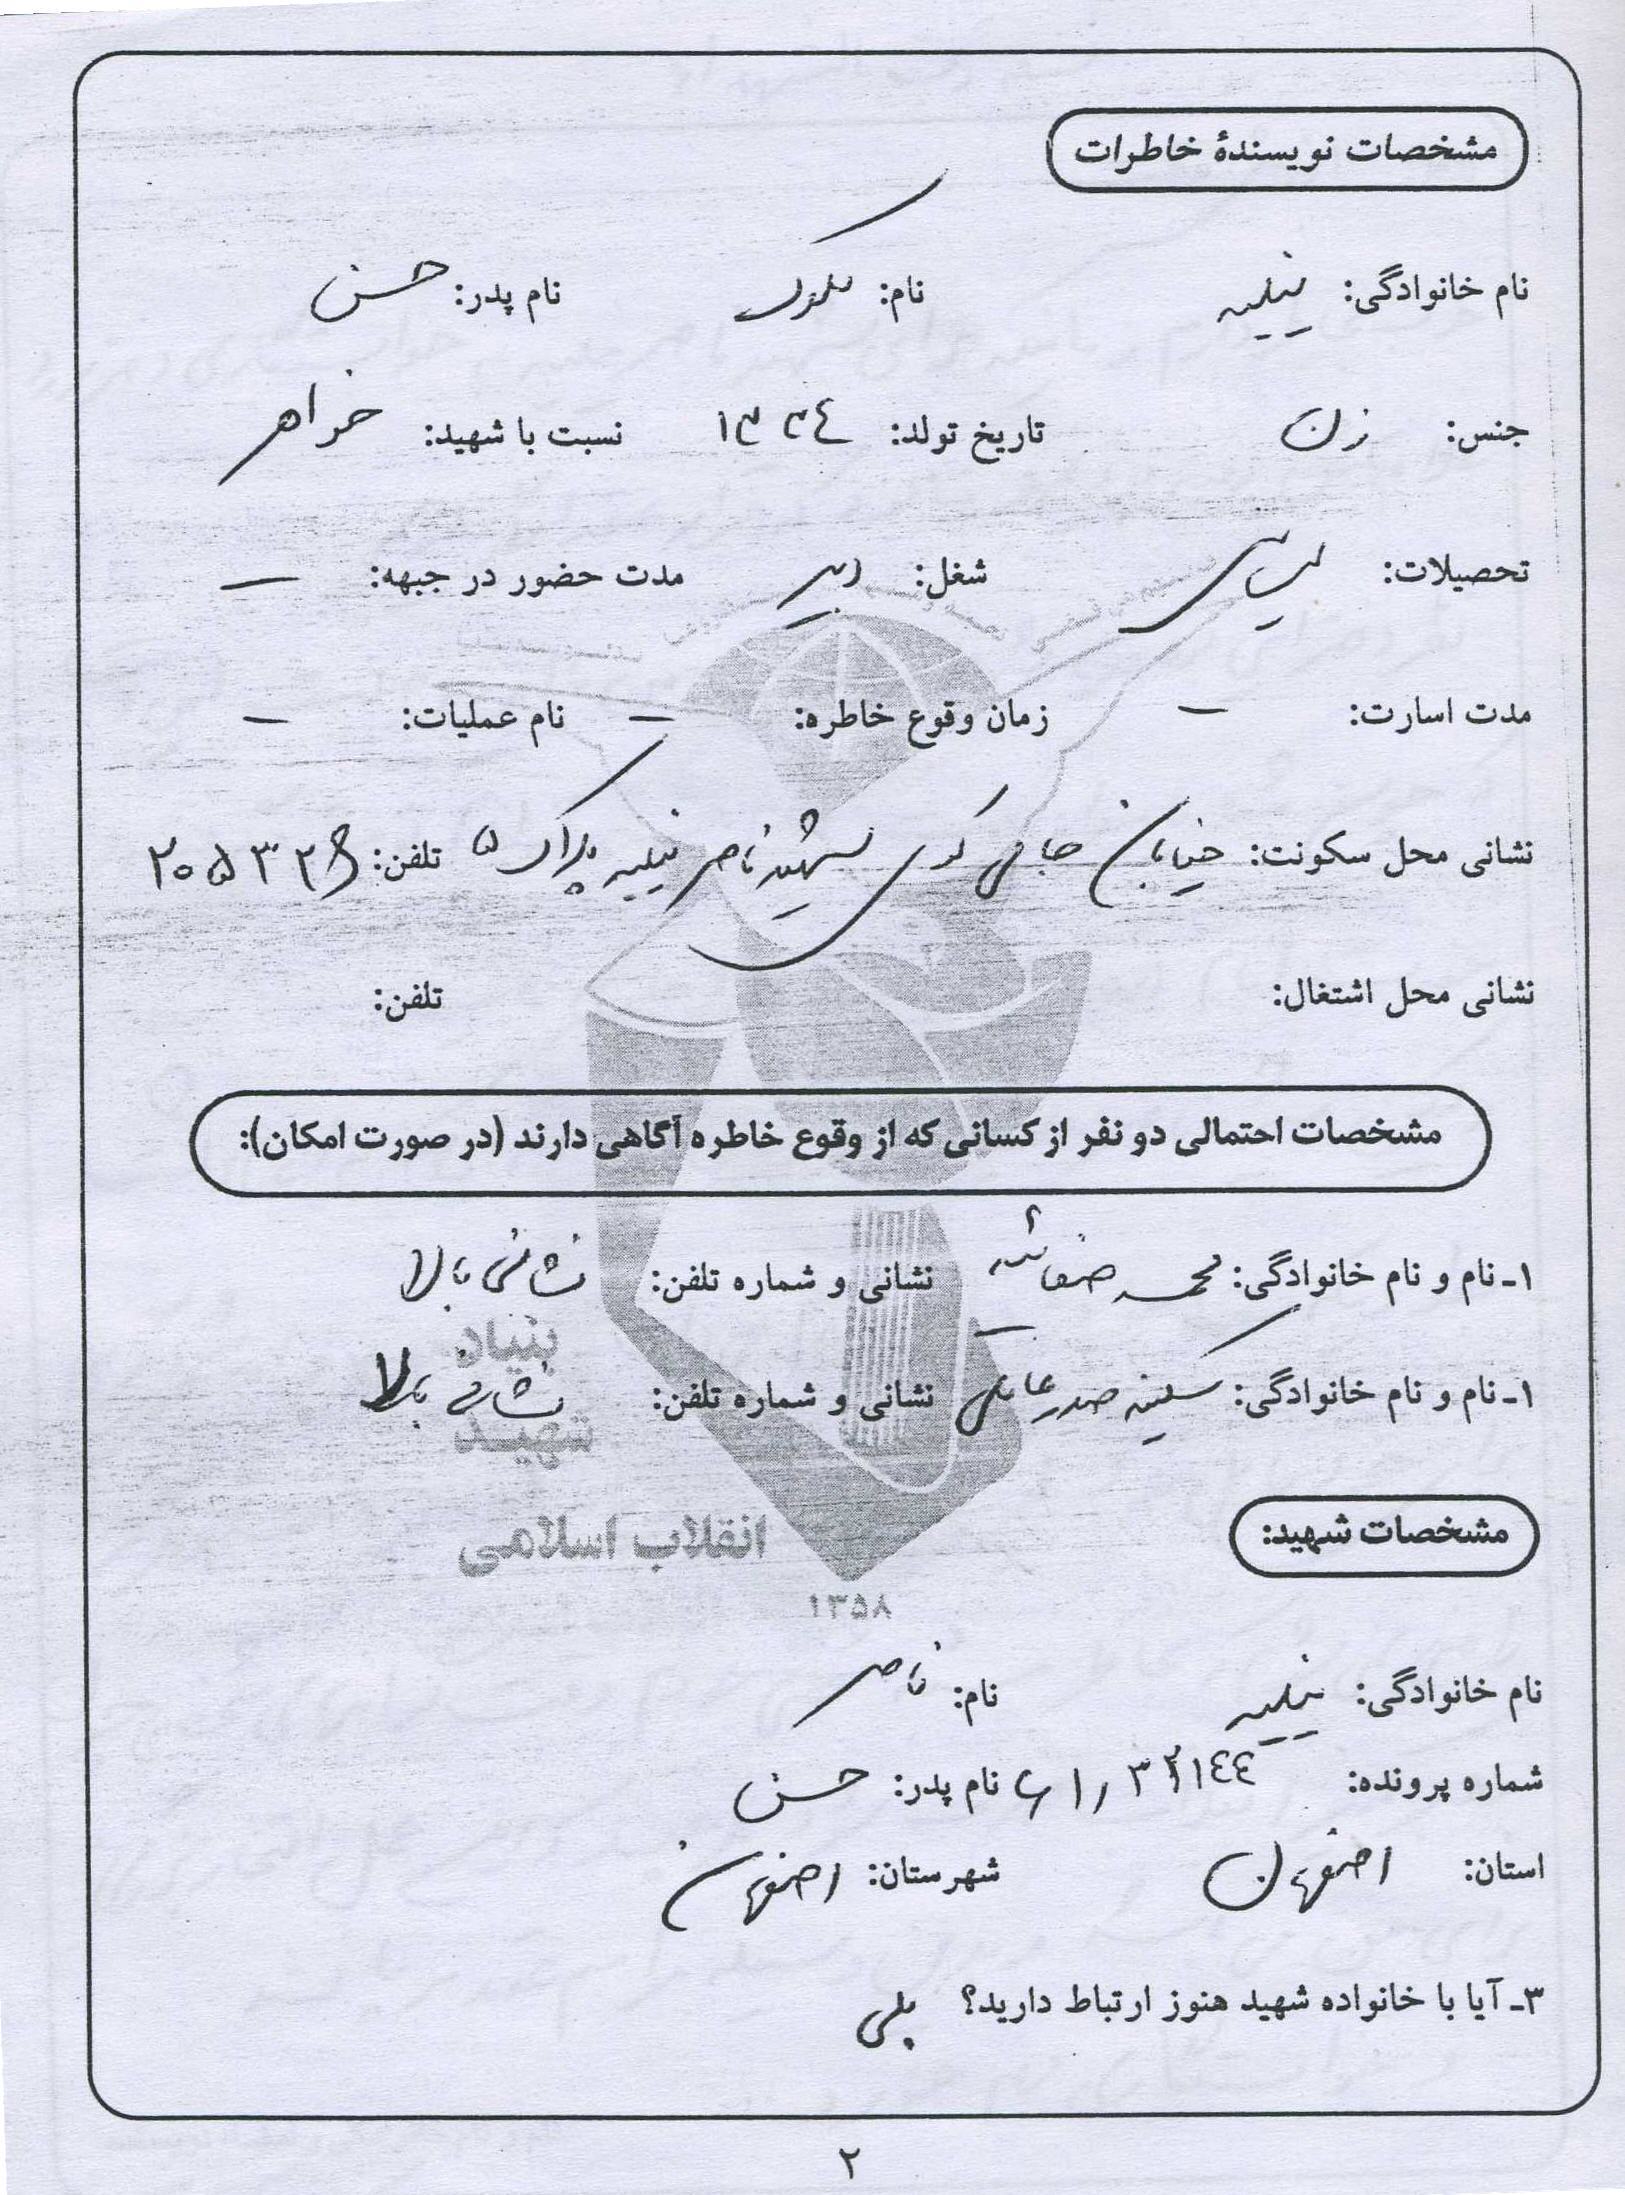 مشخصات نویسندهٔ خاطرات
نام خانوادگی: نیلیه نام: ملوک نام پدر: حسن
جنس: زن تاریخ تولد: ۱۳۳۴ نسبت با شهید: خواهر
تحصیلات: لیسانس شغل: دبیر مدت حضور در جبهه: —
مدت اسارت: — زمان وقوع خاطره: — نام عملیات: —
نشانی محل سکونت: خیابان جابر کوی شهید ناصر نیلیه پلاک ۵ تلفن:
نشانی محل اشتغال: تلفن:
مشخصات احتمالی دو نفر از کسانی که از وقوع خاطره آگاهی دارند (در صورت امکان):
۱ـ نام و نام خانوادگی: محمد نشانی و شماره تلفن: نشانی بالا
۱ـ نام و نام خانوادگی: سکینه صدرعاملی نشانی و شماره تلفن: نشانی بالا
بنیاد
شهید
انقلاب اسلامی
۱۳۵۸
مشخصات شهید:
نام خانوادگی: نیلیه نام: ناصر
شماره پرونده: نام پدر: حسن
استان: اصفهان شهرستان: اصفهان
۳ـ آیا با خانواده شهید هنوز ارتباط دارید؟ بلی
۲